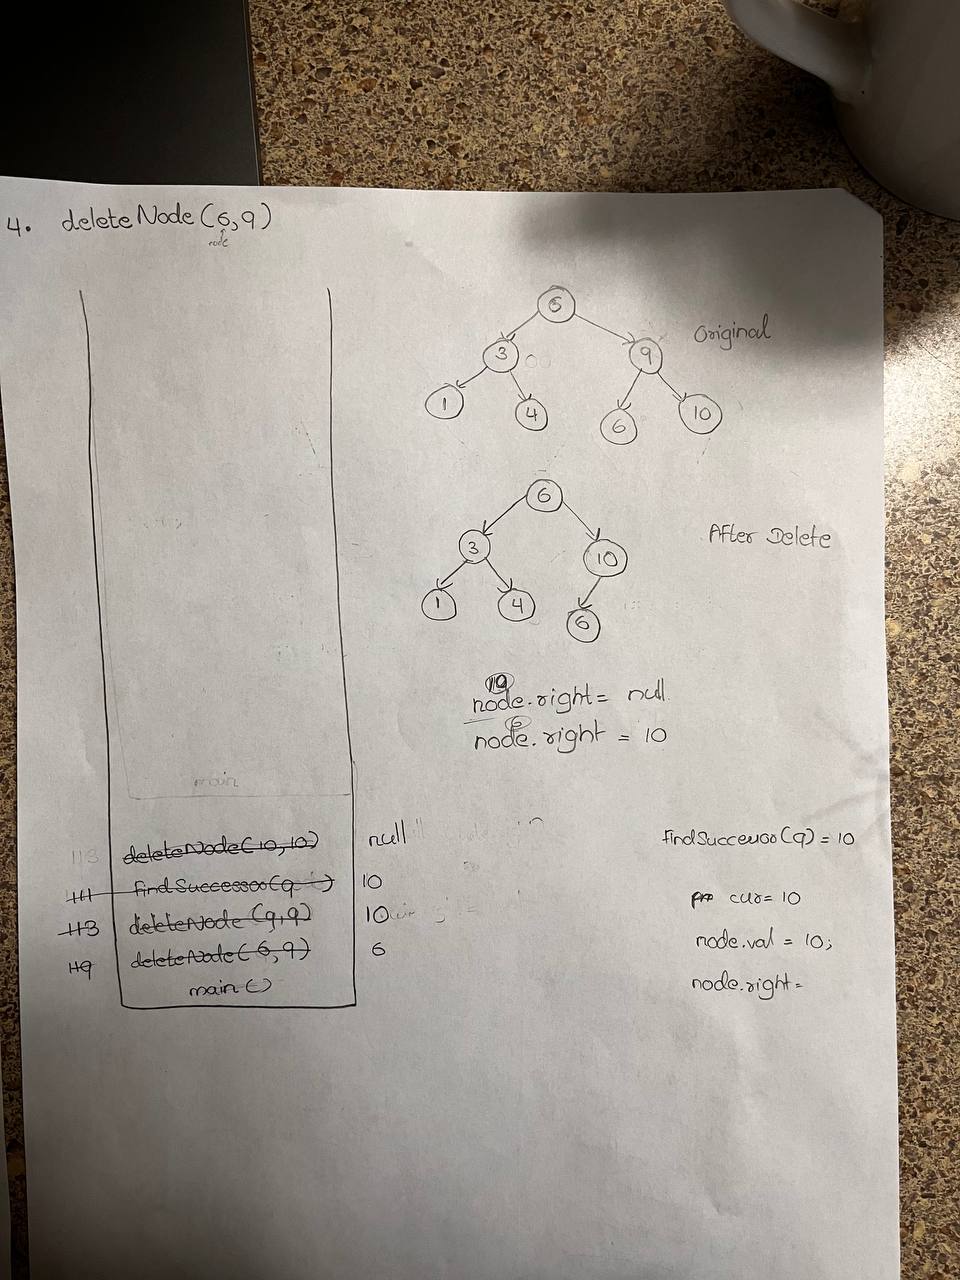 4. deleteNode(6,9)
node
6
Original
3
9
1
4
6
10
6
After Delete
3
10
1
4
6
10
node.right = null
6
node.right = 10
main
113 deleteNode(10,10) null
111 findSuccessor(9) 10
113 deleteNode(9,9) 10
119 deleteNode(6,9) 6
main()
findSuccessor(9) = 10
cur = 10
node.val = 10;
node.right =